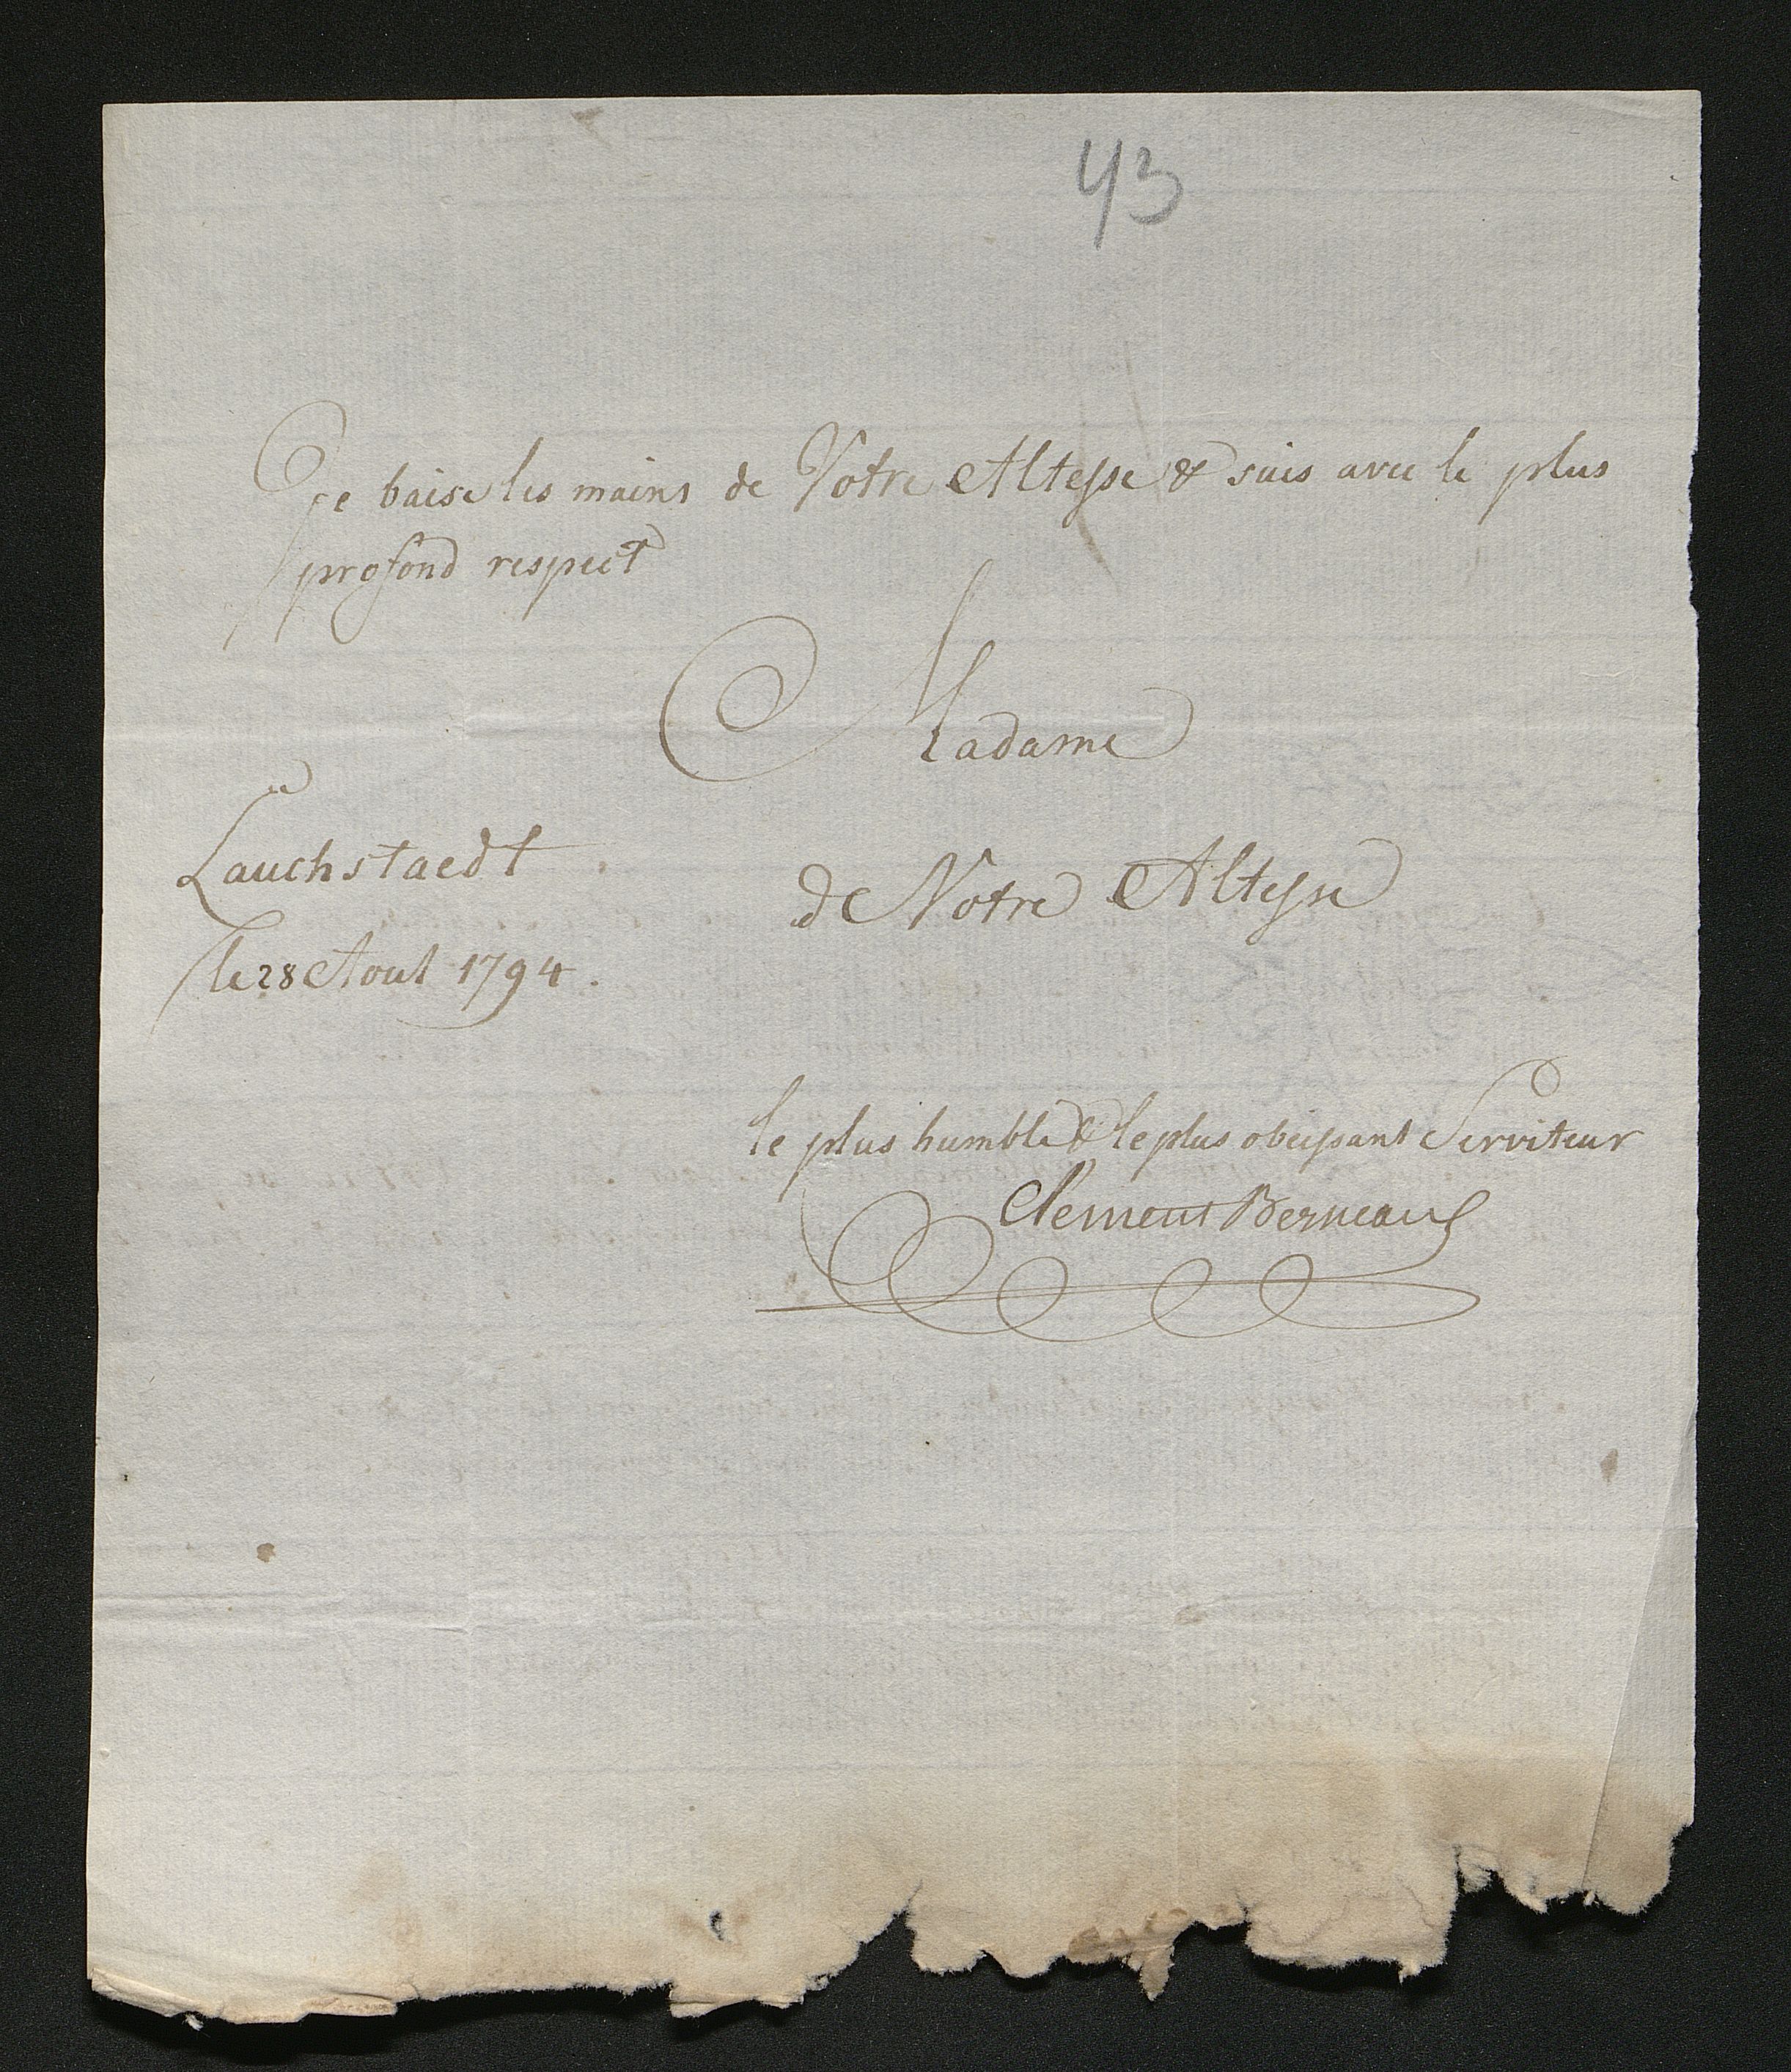 43
Je baise les mains de Votre Altesse & suis avec le plus
profond respect
Madame
Lauchstaedt
de Votre Altesse
le 28 Aout 1794.
le plus humble & le plus obeissant Serviteur
Clement Berneaux